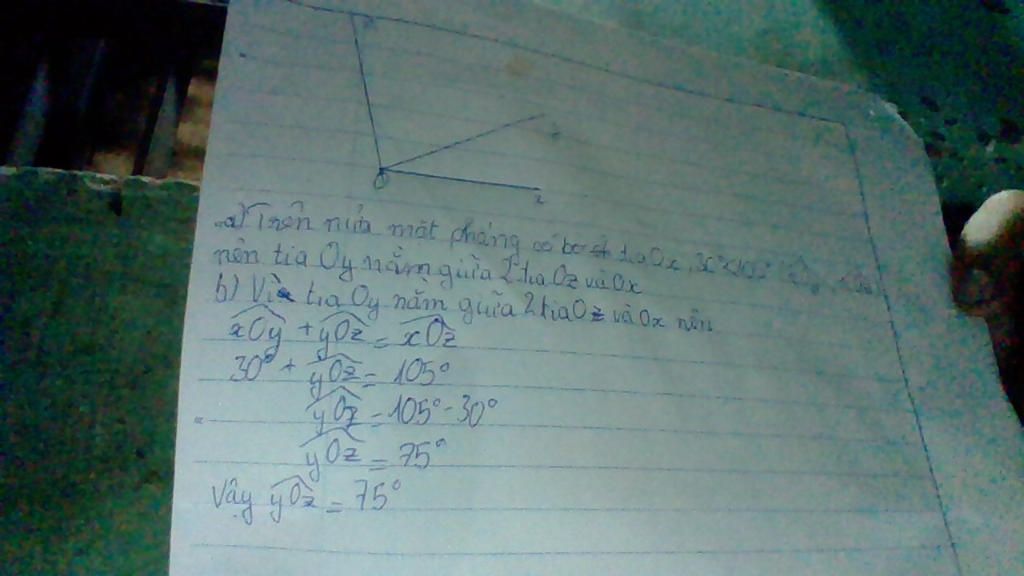 O
x
a) Trên nửa mặt phẳng có bờ tia Ox, 30° < 105°
nên tia Oy nằm giữa 2 tia Oz và Ox
b) Vì tia Oy nằm giữa 2 tia Oz và Ox nên
xOy + yOz = xOz
30° + yOz = 105°
yOz = 105° - 30°
yOz = 75°
Vậy yOz = 75°